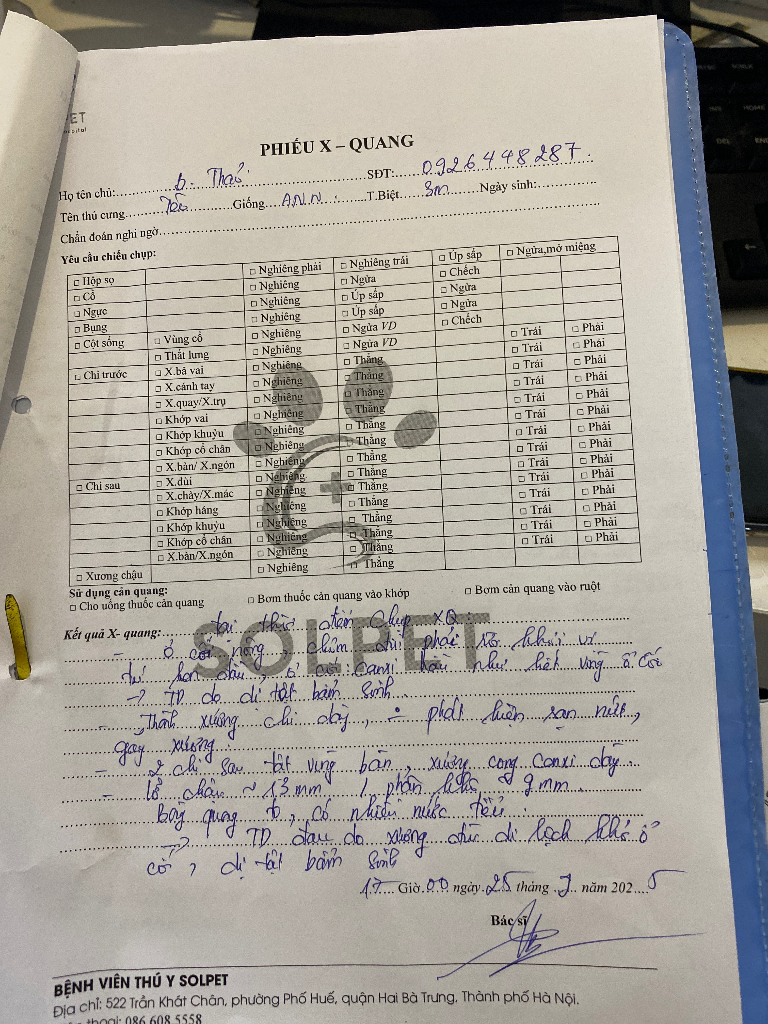 PET
PHIẾU X – QUANG
Họ tên chủ: b. Thảo SĐT: 0926448287
Tên thú cưng Giống A.N.N T.Biệt 3m Ngày sinh:
Chẩn đoán nghi ngờ
Yêu cầu chiếu chụp:
□ Hộp sọ □ Nghiêng phải □ Nghiêng trái □ Úp sấp □ Ngửa,mở miệng
□ Cổ □ Nghiêng □ Ngửa □ Chếch
□ Ngực □ Nghiêng □ Úp sấp □ Ngửa
□ Bụng □ Nghiêng □ Úp sấp □ Ngửa
□ Cột sống □ Vùng cổ □ Nghiêng □ Ngửa VD □ Chếch
□ Thắt lưng □ Nghiêng □ Ngửa VD
□ Chi trước □ X.bả vai □ Nghiêng □ Thẳng □ Trái □ Phải
□ X.cánh tay □ Nghiêng □ Thẳng □ Trái □ Phải
□ X.quay/X.trụ □ Nghiêng □ Thẳng □ Trái □ Phải
□ Khớp vai □ Nghiêng □ Thẳng □ Trái □ Phải
□ Khớp khuỷu □ Nghiêng □ Thẳng □ Trái □ Phải
□ Khớp cổ chân □ Nghiêng □ Thẳng □ Trái □ Phải
□ X.bàn/ X.ngón □ Nghiêng □ Thẳng □ Trái □ Phải
□ Chi sau □ X.đùi □ Nghiêng □ Thẳng □ Trái □ Phải
□ X.chày/X.mác □ Nghiêng □ Thẳng □ Trái □ Phải
□ Khớp háng □ Nghiêng □ Thẳng □ Trái □ Phải
□ Khớp khuỷu □ Nghiêng □ Thẳng □ Trái □ Phải
□ Khớp cổ chân □ Nghiêng □ Thẳng □ Trái □ Phải
□ X.bàn/X.ngón □ Nghiêng □ Thẳng □ Trái □ Phải
□ Xương chậu □ Nghiêng □ Thẳng
Sử dụng cản quang:
□ Cho uống thuốc cản quang □ Bơm thuốc cản quang vào khớp □ Bơm cản quang vào ruột
SOLPET
Kết quả X- quang: tại thời điểm chụp XQ
- ổ cối nông, chỏm đùi phải
canxi hầu như hết vùng ổ cối
→ TD do dị tật bẩm sinh
- Thành xương chi dày, ÷ phát hiện rạn nứt,
gãy xương
- 2 chi sau tật vùng bàn, xương cong canxi dày
- lỗ chậu ~ 13mm / phân 9mm
Bóng quang to, có nhiều nước tiểu
→ TD đau do xương đùi di lệch khỏi ổ
cối, dị tật bẩm sinh
17 Giờ 00 ngày 25 tháng 7 năm 2025
Bác sĩ
BỆNH VIỆN THÚ Y SOLPET
Địa chỉ: 522 Trần Khát Chân, phường Phố Huế, quận Hai Bà Trưng, Thành phố Hà Nội.
thoại: 086 608 5558